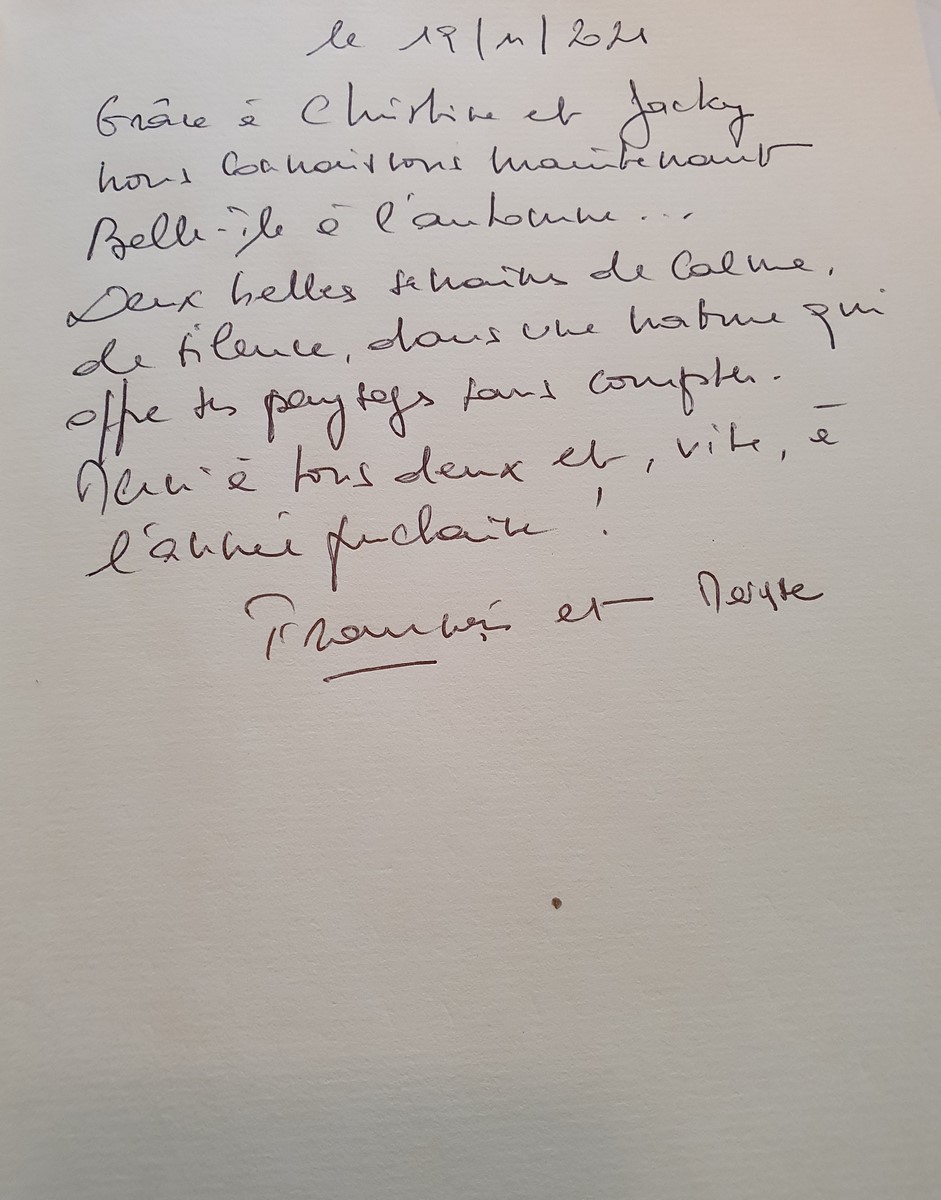 le 19/11/2021
Grâce à Christine et Jacky
nous connaissons maintenant
Belle-île à l'automne...
Deux belles semaines de calme,
de silence, dans une nature qui
offre ses paysages sans compter.
Merci à tous deux et, vite, à
l'année prochaine !
François et Maryse